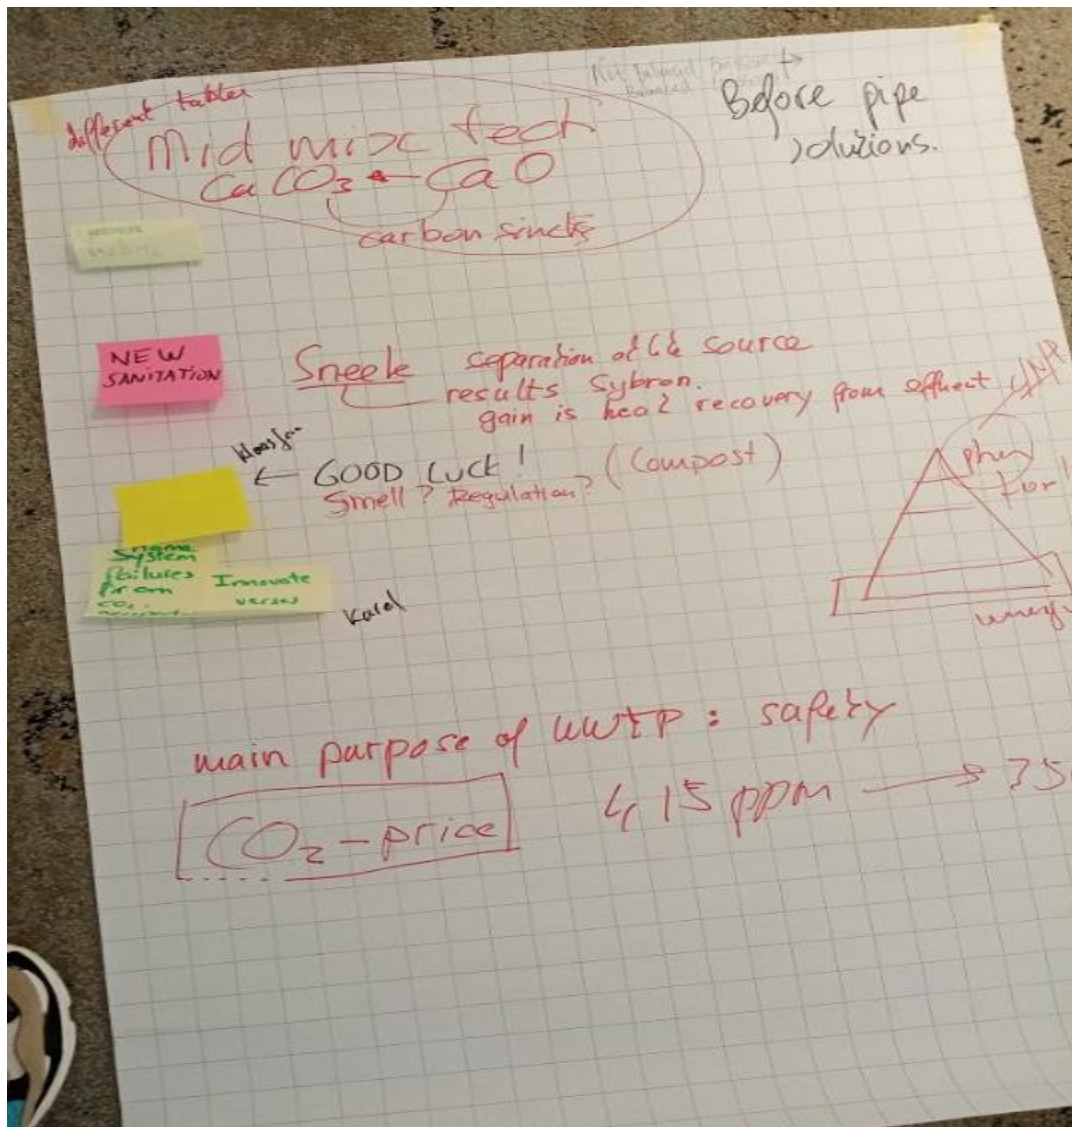 different tables
Mid mix tech
CaCO₃ ← CaO
carbon sincks
Before pipe
solutions.
NEW
SANITATION
Sneek separation at source
results Sybron.
gain is heat recovery from effluent
← GOOD LUCK! (Compost)
Smell? Regulation?
System
failures
from
CO₂
Innovate
verses
Karel
main purpose of wwtp: safety
CO₂-price
415 ppm → 35